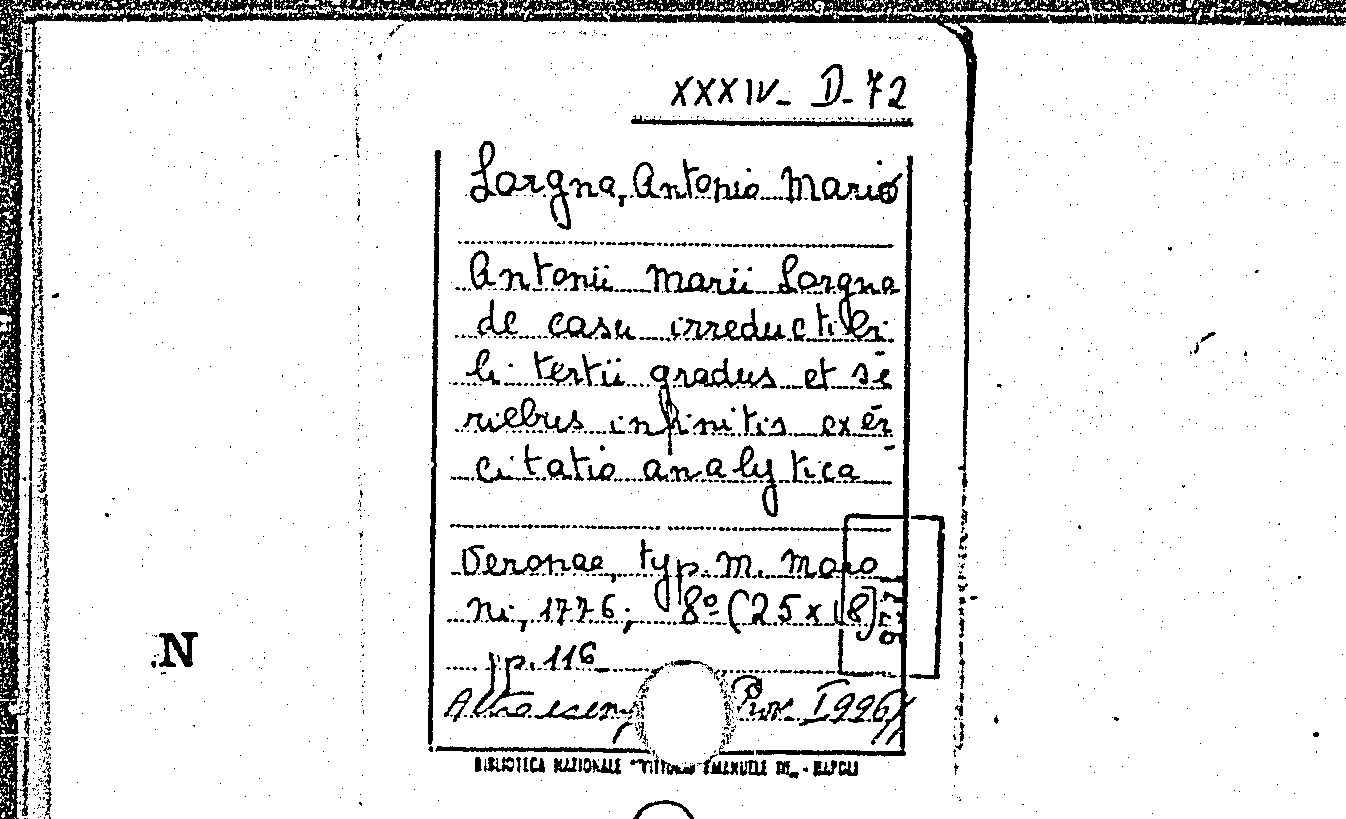 XXXIV- D- 72
Lorgna, Antonio Mario
Antonii Marii Lorgna
de casu irreductibi
li tertii gradus et se
riebus infinitis exer
citatio analytica
Veronae, typ. M. Moro
ni, 1776; 8º (25 x 18)
pp. 116
Altro esemp
N
BIBLIOTECA NAZIONALE "VITTORIO EMANUELE III" - NAPOLI